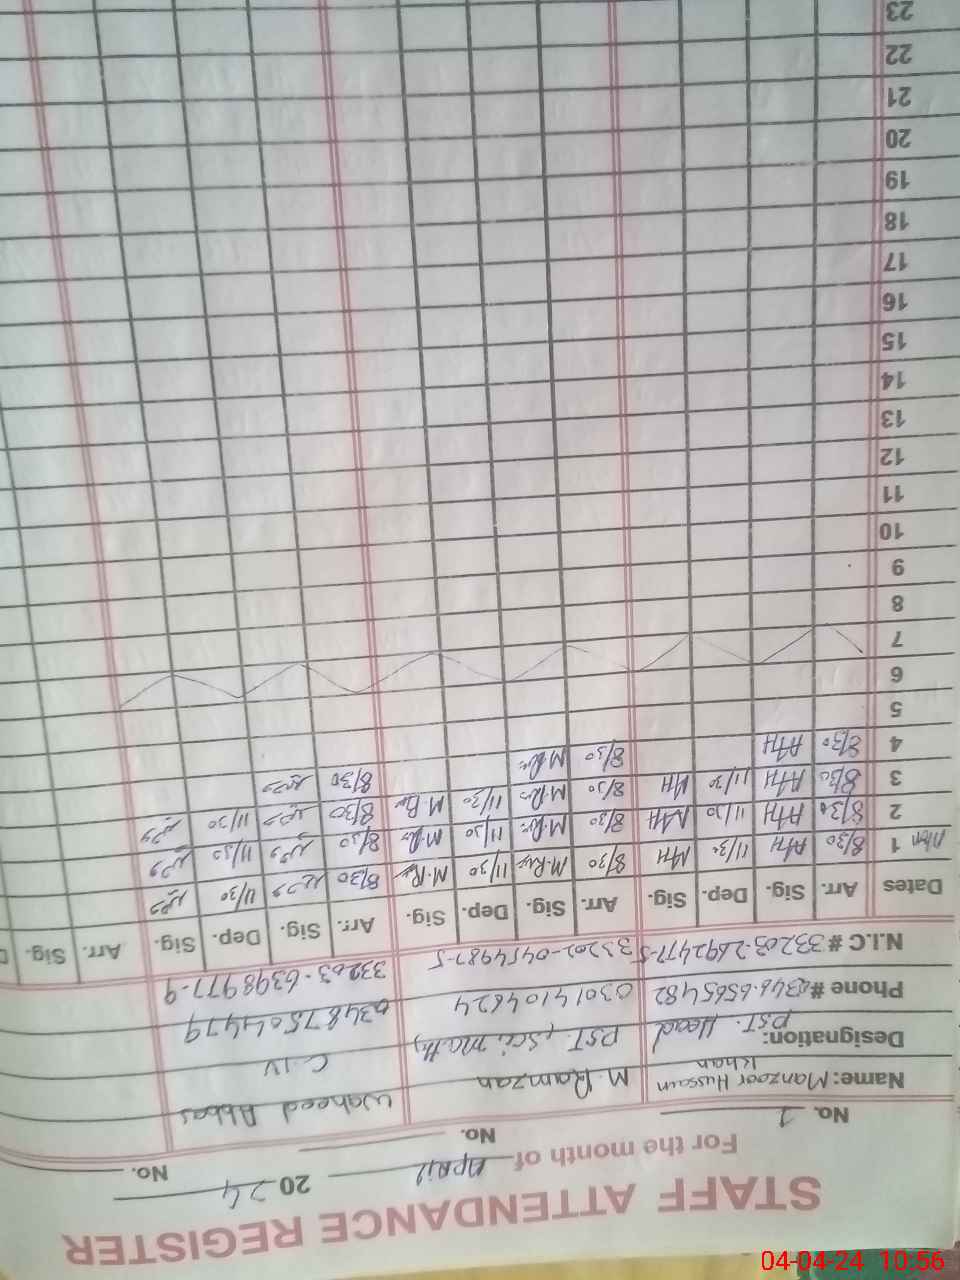 STAFF ATTENDANCE REGISTER
For the month of April 2024
No. 1 No. No.
Name: Manzoor Hussain Khan M. Ramzan Waheed Abbas
Designation: PST. Head PST. (Sci. Math) C-IV
Phone # 0346-6565482 03014104624 03487504479
N.I.C # 33203-2692477-5 33202-0454987-5 33203-6398977-9
Dates Arr. Sig. Dep. Sig. Arr. Sig. Dep. Sig. Arr. Sig. Dep. Sig. Arr. Sig.
1 8/30 11/30 8/30 11/30 8/30 11/30
2 8/30 11/30 8/30 11/30 8/30 11/30
3 8/30 11/30 8/30 11/30 8/30 11/30
4 8/30 8/30 8/30
5
6
7
8
9
10
11
12
13
14
15
16
17
18
19
20
21
22
23
04-04-24 10:56